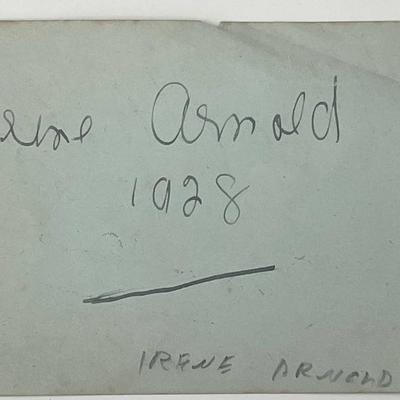 rene Arnold
1928
IRENE ARNOLD